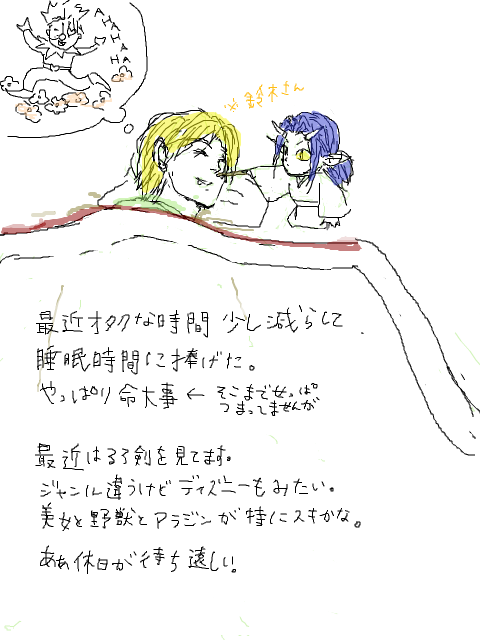 AHAHAHA
※鈴木さん
最近オタクな時間 少し減らして
睡眠時間に捧げた。
やっぱり命大事 ← そこまで切っぱ
つまってませんが
最近はるろ剣を見てます。
ジャンル違うけど ディズニーもみたい。
美女と野獣とアラジンが特にスキかな。
あぁ休日が待ち遠しい。